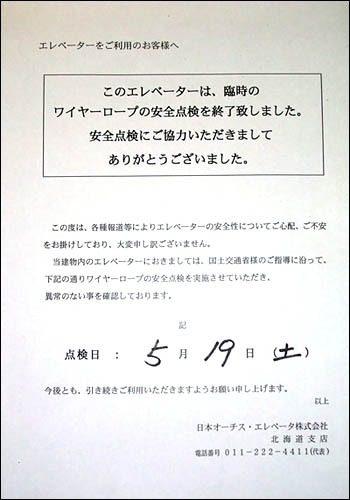 エレベーターをご利用のお客様へ
このエレベーターは、臨時の
ワイヤーロープの安全点検を終了致しました。
安全点検にご協力いただきまして
ありがとうございました。
この度は、各種報道等によりエレベーターの安全性についてご心配、ご不安
をお掛けしており、大変申し訳ございません。
当建物内のエレベーターにおきましては、国土交通省様のご指導に沿って、
下記の通りワイヤーロープの安全点検を実施させていただき、
異常のない事を確認しております。
記
点検日 : 5 月 19 日 (土)
今後とも、引き続きご利用いただきますようお願い申し上げます。
以上
日本オーチス・エレベータ株式会社
北海道支店
電話番号 011-222-4411(代表)